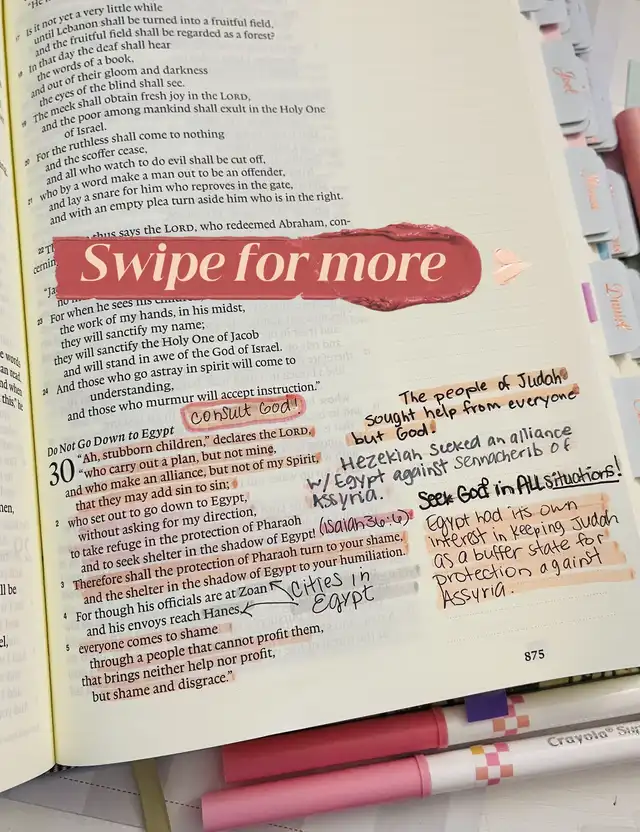 17 Is it not yet a very little while
until Lebanon shall be turned into a fruitful field,
and the fruitful field shall be regarded as a forest?
18 In that day the deaf shall hear
the words of a book,
and out of their gloom and darkness
the eyes of the blind shall see.
19 The meek shall obtain fresh joy in the LORD,
and the poor among mankind shall exult in the Holy One
of Israel.
20 For the ruthless shall come to nothing
and the scoffer cease,
and all who watch to do evil shall be cut off,
21 who by a word make a man out to be an offender,
and lay a snare for him who reproves in the gate,
and with an empty plea turn aside him who is in the right.
22 says the LORD, who redeemed Abraham, con-
Swipe for more
23 For when he sees his
the work of my hands, in his midst,
they will sanctify my name;
they will sanctify the Holy One of Jacob
and will stand in awe of the God of Israel.
24 And those who go astray in spirit will come to
understanding,
and those who murmur will accept instruction."
consult God!
Do Not Go Down to Egypt
30 "Ah, stubborn children," declares the LORD,
"who carry out a plan, but not mine,
and who make an alliance, but not of my Spirit,
that they may add sin to sin;
2 who set out to go down to Egypt,
without asking for my direction,
to take refuge in the protection of Pharaoh
and to seek shelter in the shadow of Egypt!
(Isaiah 36:6)
3 Therefore shall the protection of Pharaoh turn to your shame,
and the shelter in the shadow of Egypt to your humiliation.
4 For though his officials are at Zoan
and his envoys reach Hanes,
cities in
Egypt
5 everyone comes to shame
through a people that cannot profit them,
that brings neither help nor profit,
but shame and disgrace."
The people of Judah
sought help from everyone
but God!
Hezekiah seeked an alliance
w/ Egypt against Sennacherib of
Assyria.
Seek God in ALL situations!
Egypt had its own
interest in keeping Judah
as a buffer state for
protection against
Assyria.
875
Joel
Daniel
Crayola